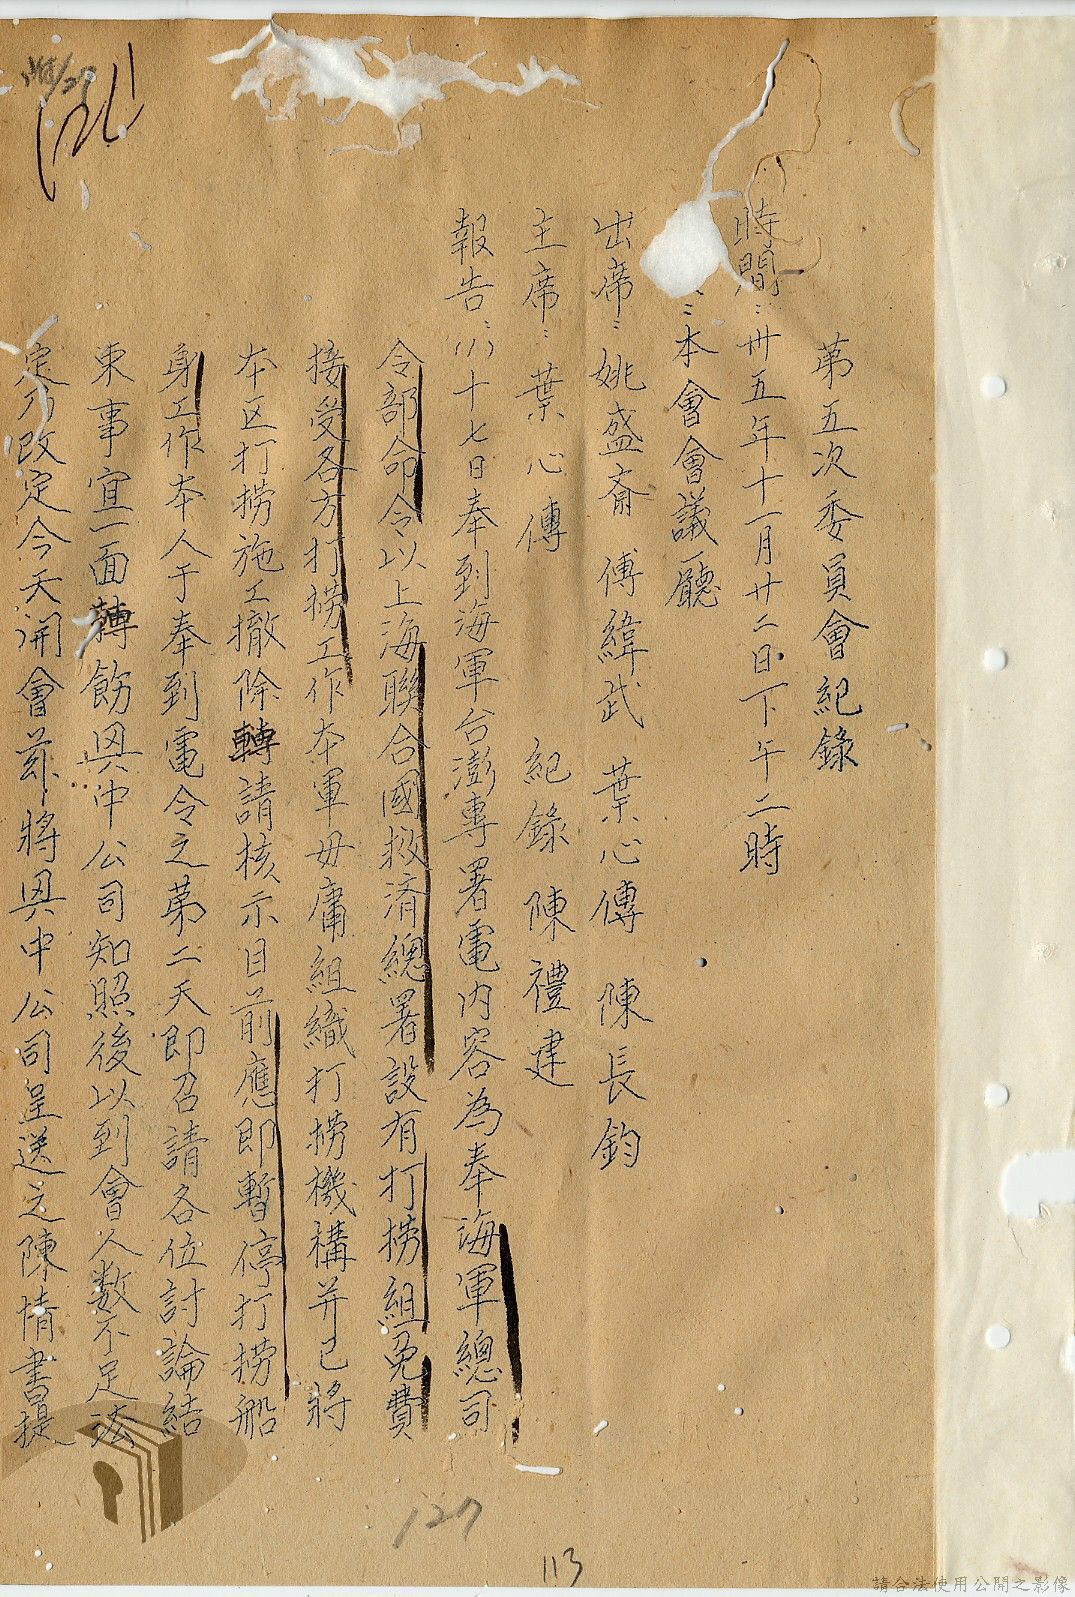 第五次委員會紀錄
時間：卅五年十一月廿二日下午二時
：本會會議廳
出席：姚盛齋 傅緯武 葉心傳 陳長鈞
主席：葉心傳 紀錄 陳禮建
報告：(1)十七日奉到海軍台澎專署電內容為奉海軍總司
令部命令以上海聯合國救済總署設有打撈組免費
接受各方打撈工作本軍毋庸組織打撈機構并已將
本区打撈施工撤除轉請核示目前應即暫停打撈船
身工作本人于奉到電令之第二天即召請各位討論結
束事宜一面轉飭興中公司知照後以到會人数不足法
定乃改定今天開會茲將興中公司呈送之陳情書提
127
113
請合法使用公開之影像